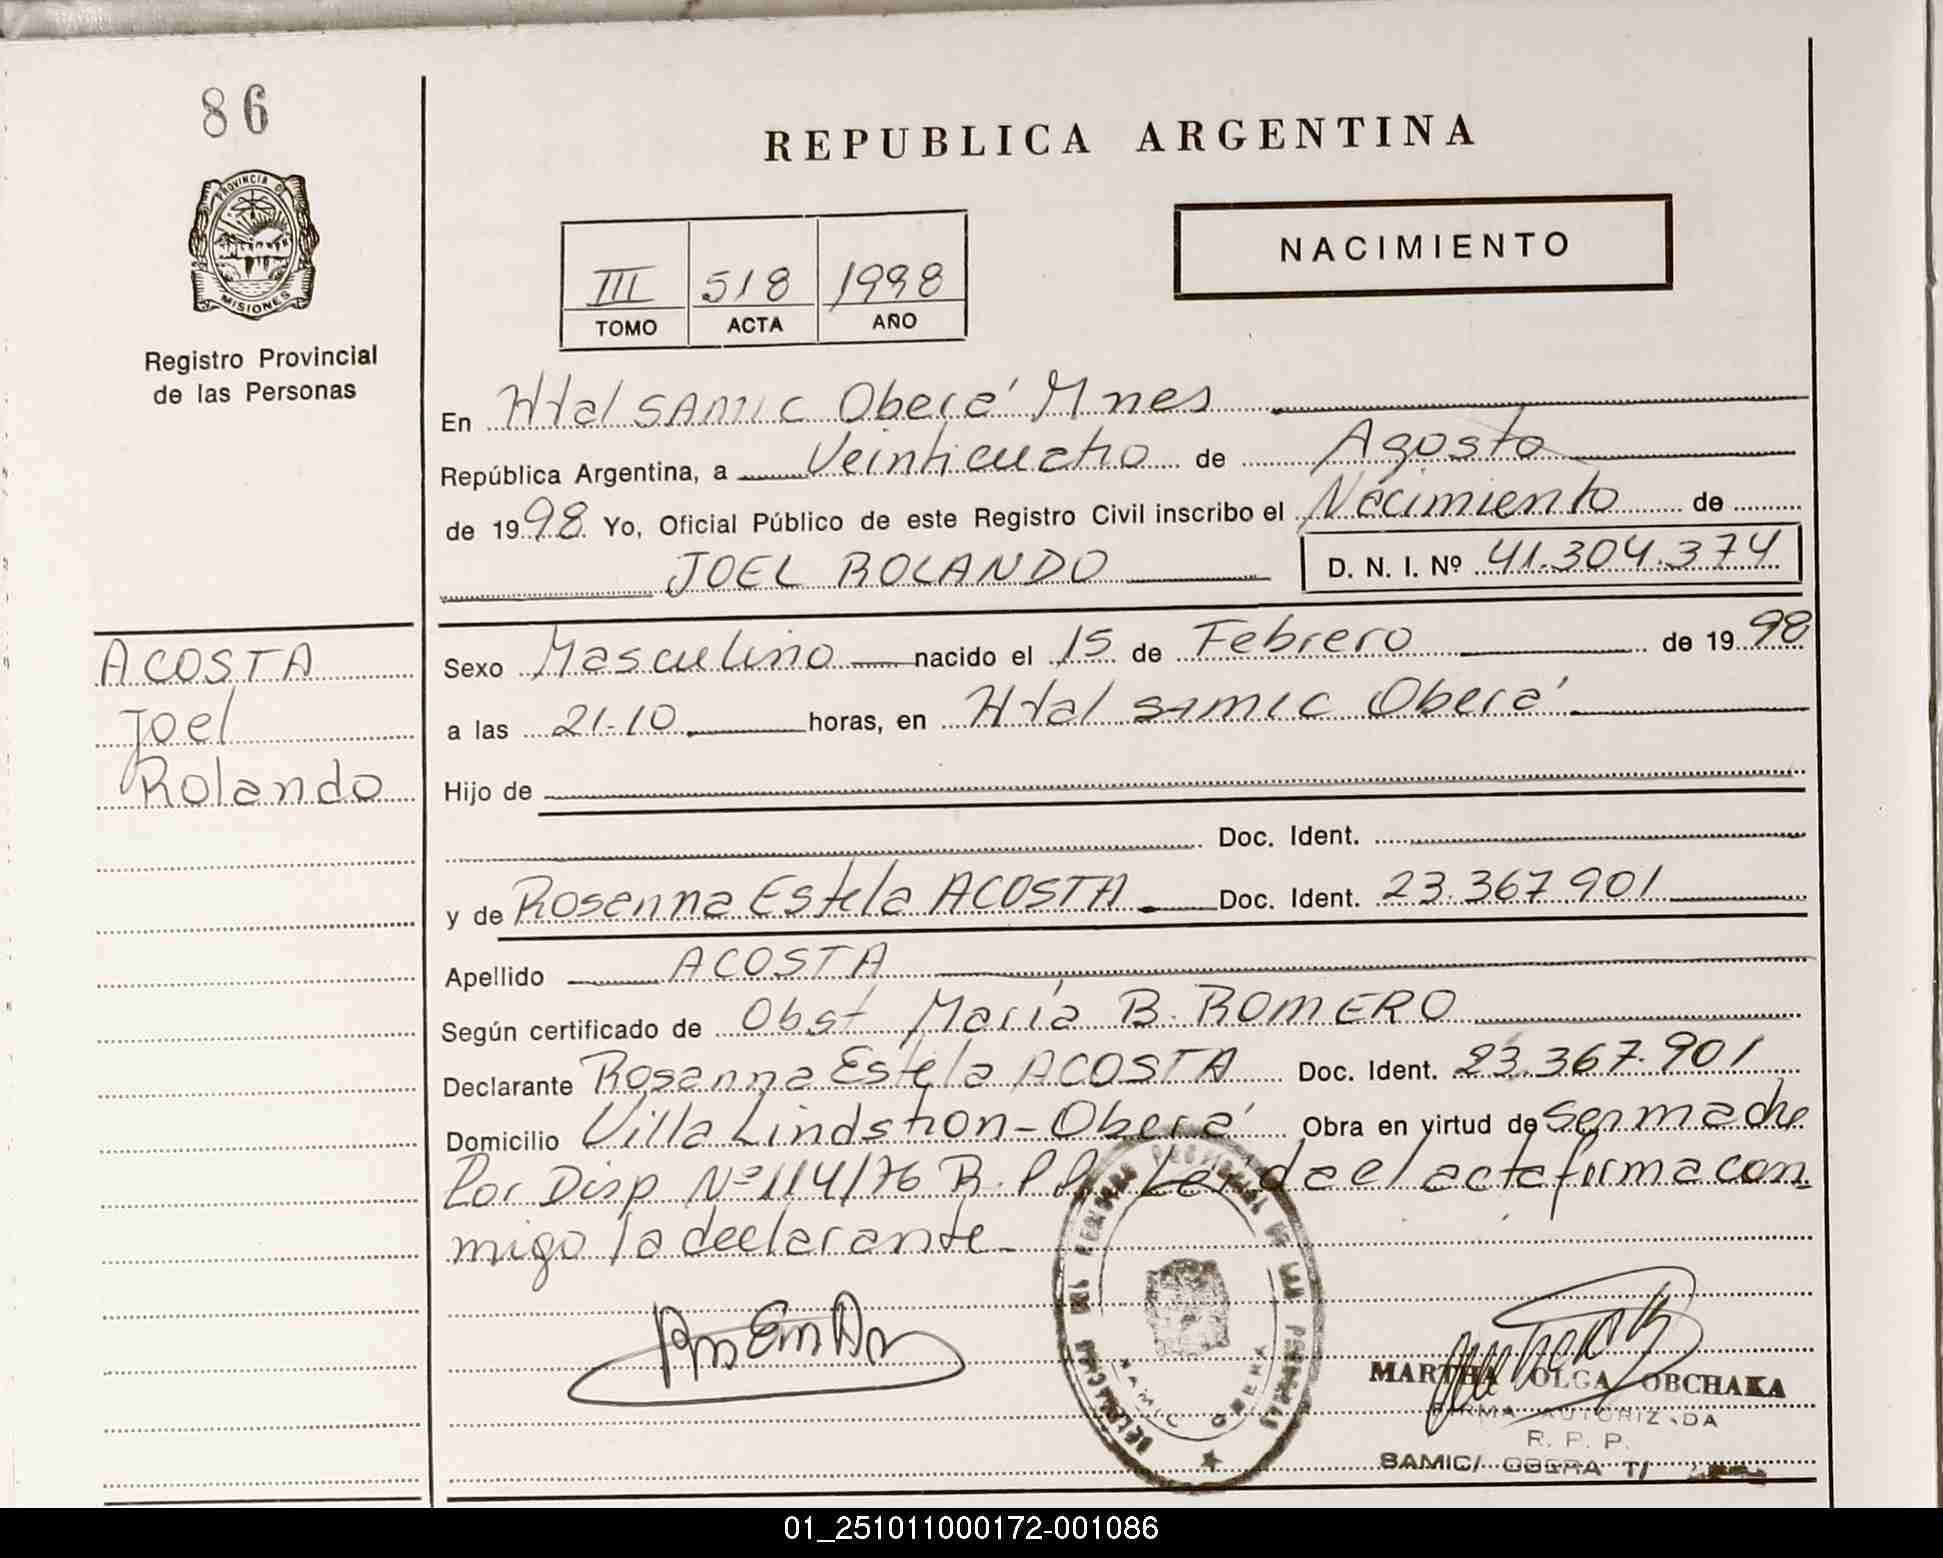 86
PROVINCIA DE
MISIONES
Registro Provincial
de las Personas
REPUBLICA ARGENTINA
NACIMIENTO
III 518 1998
TOMO ACTA AÑO
En Htal SAMIC Oberá Mnes
República Argentina, a Veinticuatro de Agosto
de 1998 Yo, Oficial Público de este Registro Civil inscribo el Nacimiento de
JOEL ROLANDO D. N. I. Nº 41.304.374
ACOSTA
Joel
Rolando
Sexo Masculino nacido el 15 de Febrero de 1998
a las 21-10 horas, en Htal SAMIC Oberá
Hijo de
Doc. Ident.
y de Rosanna Estela ACOSTA Doc. Ident. 23.367.901
Apellido ACOSTA
Según certificado de Obst María B. ROMERO
Declarante Rosanna Estela ACOSTA Doc. Ident. 23.367.901
Domicilio Villa Lindstron - Oberá Obra en virtud de ser madre
Por Disp Nº 114/76 R.P.P. Leida el acta firma con
migo la declarante
MARTHA OLGA OBCHAKA
FIRMA AUTORIZADA
R. P. P.
SAMIC/ OBERA
01_251011000172-001086